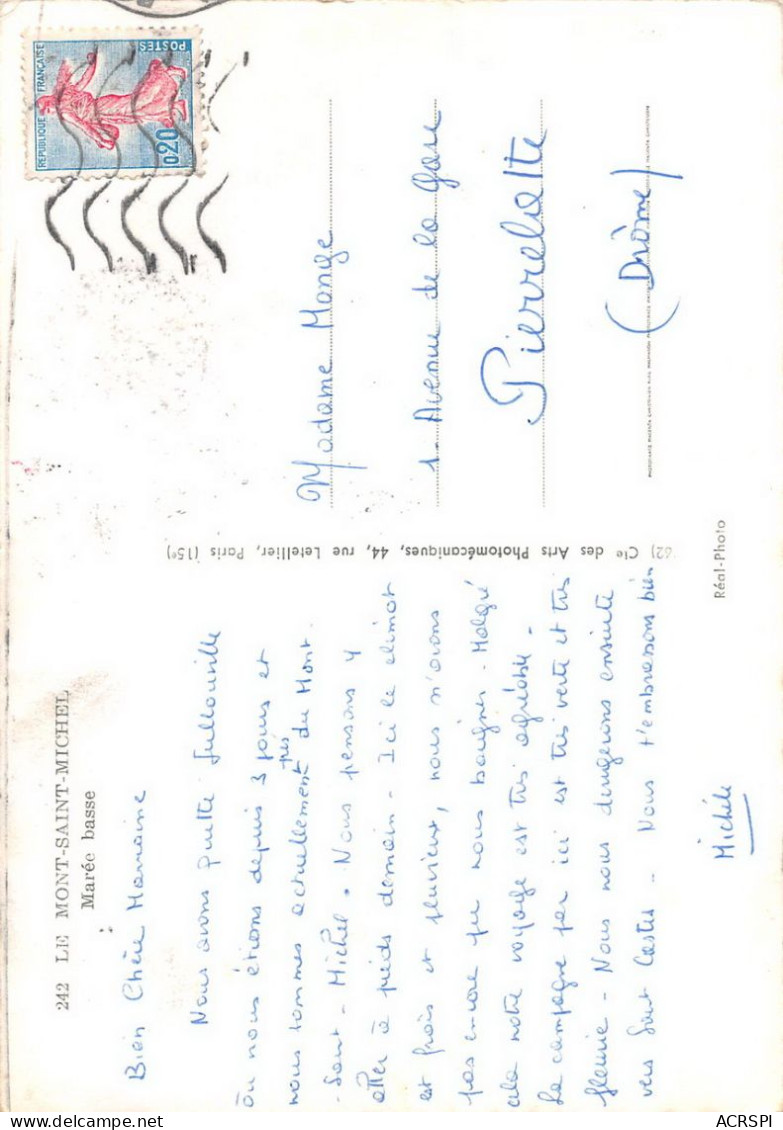 242 LE MONT-SAINT-MICHEL
Marée basse
Bien Chère Marraine
Nous avons quitté Jullouville
où nous étions depuis 3 jours et
nous sommes actuellement près du Mont
-Saint-Michel. Nous pensons y
aller à pieds demain - Ici le climat
est frais et pluvieux, nous n'avons
pas encore pu nous baigner. Malgré
cela notre voyage est très agréable -
La campagne par ici est très verte et très
fleurie - Nous nous dirigerons ensuite
vers Saint Castes - Nous t'embrassons bien
Michèle
62) Cie des Arts Photomécaniques, 44, rue Letellier, Paris (15e)
REPUBLIQUE FRANÇAISE
POSTES
0,20
Madame Monge
1. Avenue de la Gare
Pierrelatte
(Drôme)
Réal-Photo
ACRSPI